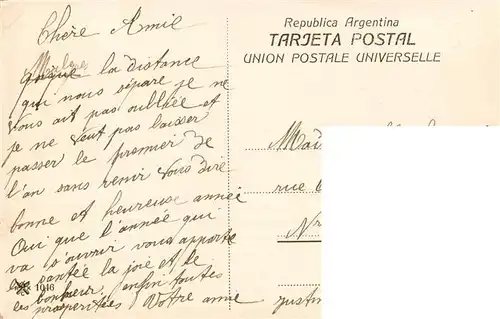 Republica Argentina
TARJETA POSTAL
UNION POSTALE UNIVERSELLE
Chère Amie
Malgre
que la distance
qui nous sépare je ne
vous ait pas oubliée et
je ne veut pas laisser
passer le premier de
l'an sans venir vous dire
bonne et heureuse année
Oui que l'année qui
va s'ouvrir vous apporte
santée la joie et le
bonheur enfin toutes
les prosperitées Votre amie
1046
Mad
rue
N